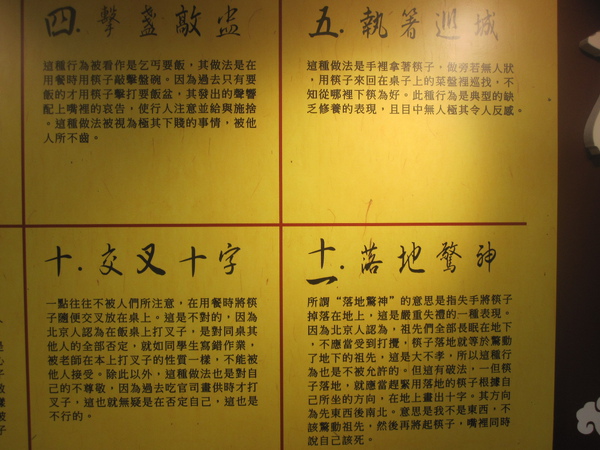 四.擊盞敲盅
這種行為被看作是乞丐要飯，其做法是在
用餐時用筷子敲擊盤碗。因為過去只有要
飯的才用筷子擊打要飯盆，其發出的聲響
配上嘴裡的哀告，使行人注意並給與施捨
。這種做法被視為極其下賤的事情，被他
人所不齒。
五.執箸巡城
這種做法是手裡拿著筷子，做旁若無人狀
，用筷子來回在桌子上的菜盤裡巡找，不
知從哪裡下筷為好。此種行為是典型的缺
乏修養的表現，且目中無人極其令人反感。
十.交叉十字
一點往往不被人們所注意，在用餐時將筷
子隨便交叉放在桌上。這是不對的，因為
北京人認為在飯桌上打叉子，是對同桌其
他人的全部否定，就如同學生寫錯作業，
被老師在本上打叉子的性質一樣，不能被
他人接受。除此以外，這種做法也是對自
己的不尊敬，因為過去吃官司畫供時才打
叉子，這也就無疑是在否定自己，這也是
不行的。
十一.落地驚神
所謂“落地驚神”的意思是指失手將筷子
掉落在地上，這是嚴重失禮的一種表現。
因為北京人認為，祖先們全部長眠在地下
，不應當受到打攪，筷子落地就等於驚動
了地下的祖先，這是大不孝，所以這種行
為也是不被允許的。但這有破法，一但筷
子落地，就應當趕緊用落地的筷子根據自
己所坐的方向，在地上畫出十字。其方向
為先東西後南北。意思是我不是東西，不
該驚動祖先，然後再將起筷子，嘴裡同時
說自己該死。